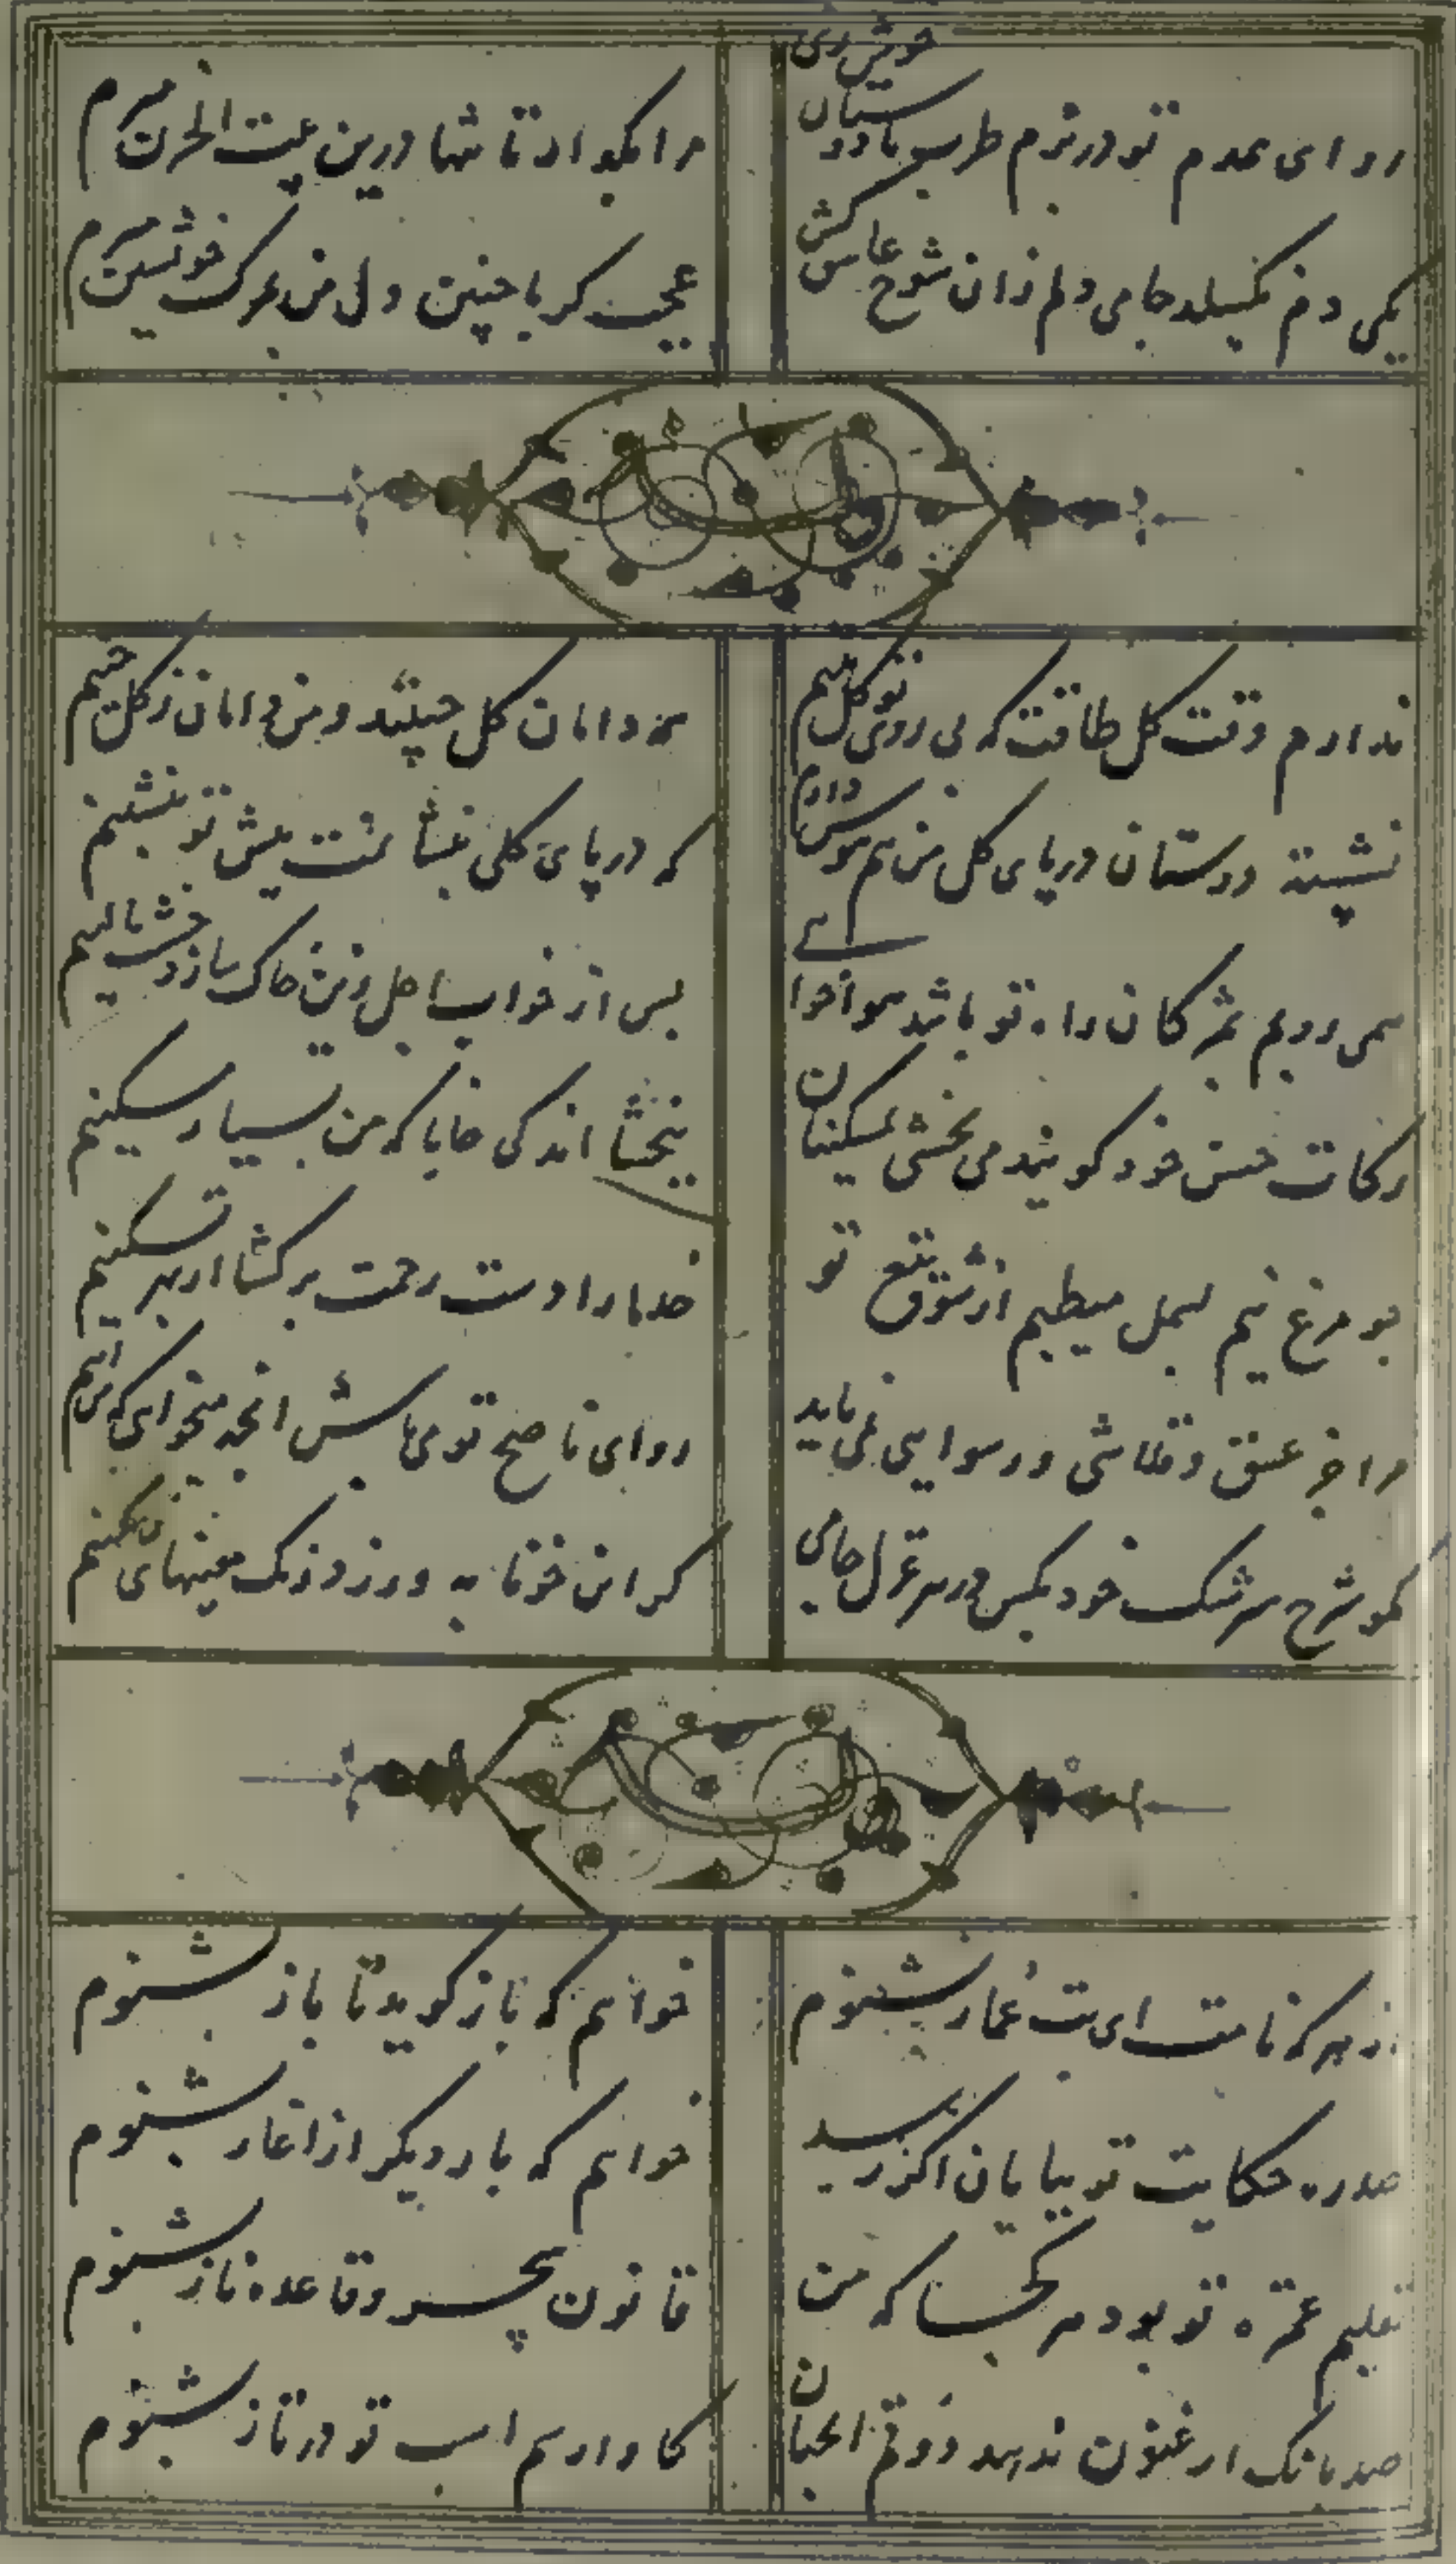 رو ای همدم تو در بزم طرب با دوستان خوش زی
مرا بگذار تا تنها درین بیت الحزن میرم
یکی دم نگسلد جامی دلم زان شوخ عاشق کش
عجب گر با چنین دلی من بمرگ خویشتن میرم
ندارم وقت گل طاقت که بی روی تو گل بینم
همه دامان گل چینند و من دامان ز گل چینم
نشسته دوستان در پای گل من هم هوس دارم
که در پای گلی بنشانمت پیش تو بنشینم
همی روبم بمژگان راه تو باشد سواخوابی
پس از خواب اجل زین خاک سازد خشت بالینم
زکات حسن خود گویند می بخشی بمسکینان
ببخشا اندکی جانا که من بسیار مسکینم
چو مرغ نیم بسمل میطپم از شوق تیغ تو
خدا را دست رحمت برگشا از بهر تسکینم
مرا جز عشق و قلاشی و رسوایی نمی باید
رو ای ناصح تو می باش انچه میخواهی که من اینم
مگو شرح سرشک خود بکس در هر غزل جامی
که این خونابه ورزد رنگ معنیهای رنگینم
از هر که نامت ای بت غماز بشنوم
خواهم که باز گوید تا باز بشنوم
صد ره حکایت تو بپایان اگر رسید
خواهم که بار دیگر از اغاز بشنوم
تعلیم غمزه تو بود هر کجا که من
قانون سحر و قاعده ناز بشنوم
صد بانک ارغنون ندهد ذوقم انچنان
کاواز سم اسب تو در تاز بشنوم